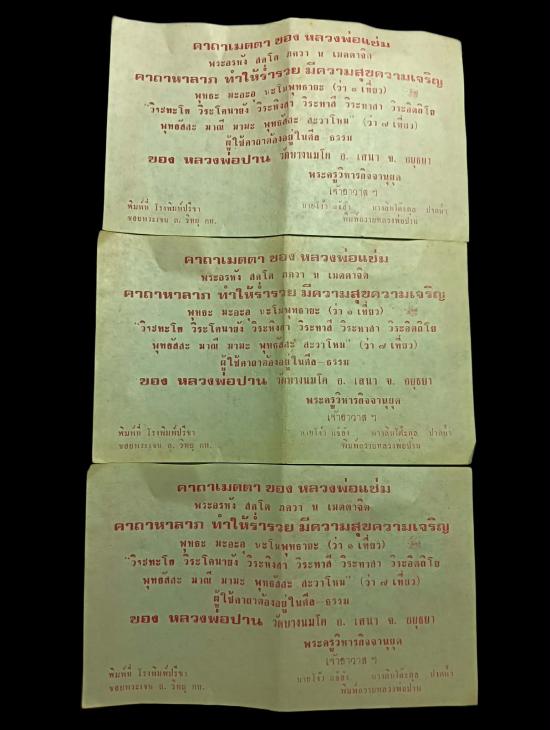 คาถาเมตตา ของ หลวงพ่อแช่ม
พระอรหัง สุคโต ภควา น เมตตาจิต
คาถาหาลาภ ทำให้ร่ำรวย มีความสุขความเจริญ
พุทธะ มะอะอุ นะโมพุทธายะ (ว่า ๑ เที่ยว)
"วิระทะโย วิระโคนายัง วิระหิงสา วิระทาสี วิระทาสา วิระอิตถิโย
พุทธัสสะ มาณี มามะ พุทธัสสะ สะวาโหม" (ว่า ๗ เที่ยว)
ผู้ใช้คาถาต้องอยู่ในศีล-ธรรม
ของ หลวงพ่อปาน วัดบางนมโค อ. เสนา จ. อยุธยา
พระครูวิหารกิจจานุยุต
เจ้าอาวาส ฯ
พิมพ์ที่ โรงพิมพ์ปรีชา
ซอยพระเจน ถ. วิทยุ กท.
นายโง้ว ปากน้ำ
พิมพ์ถวายหลวงพ่อปาน
คาถาเมตตา ของ หลวงพ่อแช่ม
พระอรหัง สุคโต ภควา น เมตตาจิต
คาถาหาลาภ ทำให้ร่ำรวย มีความสุขความเจริญ
พุทธะ มะอะอุ นะโมพุทธายะ (ว่า ๑ เที่ยว)
"วิระทะโย วิระโคนายัง วิระหิงสา วิระทาสี วิระทาสา วิระอิตถิโย
พุทธัสสะ มาณี มามะ พุทธัสสะ สะวาโหม" (ว่า ๗ เที่ยว)
ผู้ใช้คาถาต้องอยู่ในศีล-ธรรม
ของ หลวงพ่อปาน วัดบางนมโค อ. เสนา จ. อยุธยา
พระครูวิหารกิจจานุยุต
เจ้าอาวาส ฯ
พิมพ์ที่ โรงพิมพ์ปรีชา
ซอยพระเจน ถ. วิทยุ กท.
นายโง้ว ปากน้ำ
พิมพ์ถวายหลวงพ่อปาน
คาถาเมตตา ของ หลวงพ่อแช่ม
พระอรหัง สุคโต ภควา น เมตตาจิต
คาถาหาลาภ ทำให้ร่ำรวย มีความสุขความเจริญ
พุทธะ มะอะอุ นะโมพุทธายะ (ว่า ๑ เที่ยว)
"วิระทะโย วิระโคนายัง วิระหิงสา วิระทาสี วิระทาสา วิระอิตถิโย
พุทธัสสะ มาณี มามะ พุทธัสสะ สะวาโหม" (ว่า ๗ เที่ยว)
ผู้ใช้คาถาต้องอยู่ในศีล-ธรรม
ของ หลวงพ่อปาน วัดบางนมโค อ. เสนา จ. อยุธยา
พระครูวิหารกิจจานุยุต
เจ้าอาวาส ฯ
พิมพ์ที่ โรงพิมพ์ปรีชา
ซอยพระเจน ถ. วิทยุ กท.
นายโง้ว ปากน้ำ
พิมพ์ถวายหลวงพ่อปาน